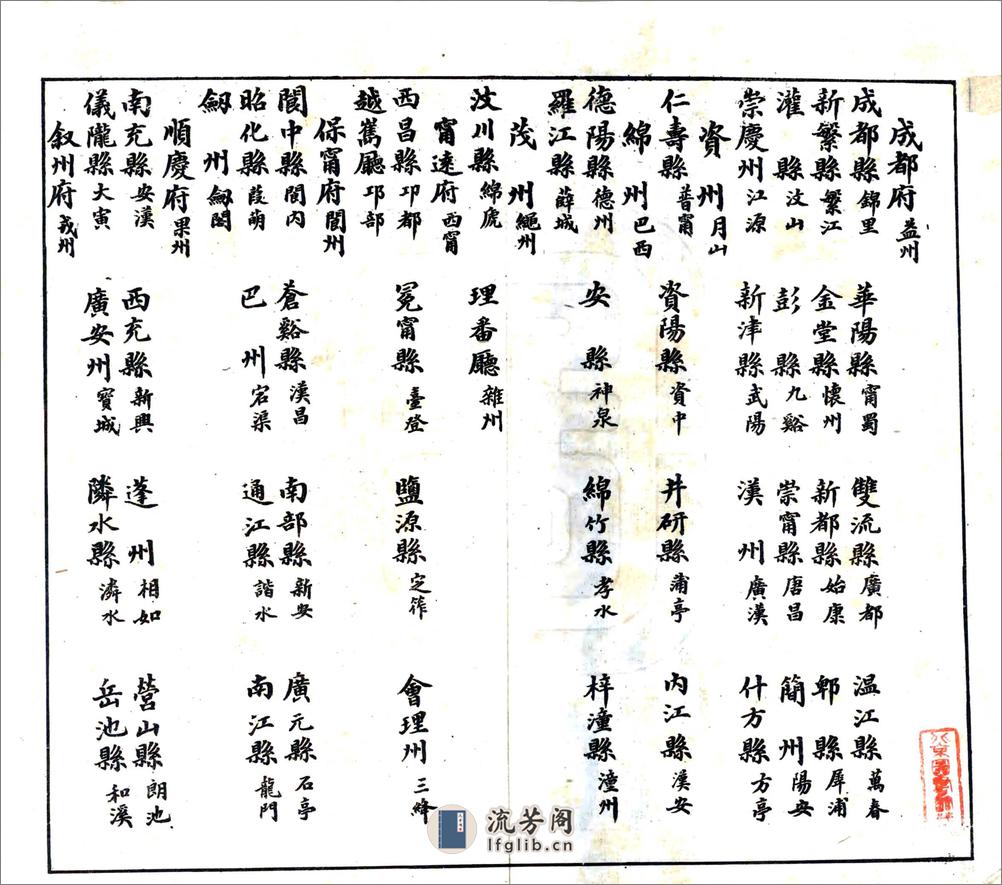 成都府 益州
成都縣 錦里 華陽縣 甯蜀 雙流縣 廣都 温江縣 萬春
新繁縣 繁江 金堂縣 懷州 新都縣 始康 郫縣 犀浦
灌縣 汶山 彭縣 九谿 崇甯縣 唐昌 簡州 陽安
崇慶州 江源 新津縣 武陽 漢州 廣漢 什方縣 方亭
資州 月山
仁壽縣 普甯 資陽縣 資中 井研縣 蒲亭 內江縣 漢安
綿州 巴西
德陽縣 德州 安縣 神泉 綿竹縣 孝水 梓潼縣 潼州
羅江縣 薛城
茂州 繩州
汶川縣 綿虒 理番廳 雜州
甯遠府 西甯
西昌縣 卭都 冕甯縣 臺登 鹽源縣 定筰 會理州 三絳
越嶲廳 邛部
保甯府 閬州
閬中縣 閬內 蒼谿縣 漢昌 南部縣 新安 廣元縣 石亭
昭化縣 葭萌 巴州 宕渠 通江縣 諧水 南江縣 龍門
劒州 劒閣
順慶府 果州
南充縣 安漢 西充縣 新興 蓬州 相如 營山縣 朗池
儀隴縣 大寅 廣安州 寳城 隣水縣 潾水 岳池縣 和溪
叙州府 戎州
流芳阁
lfglib.cn